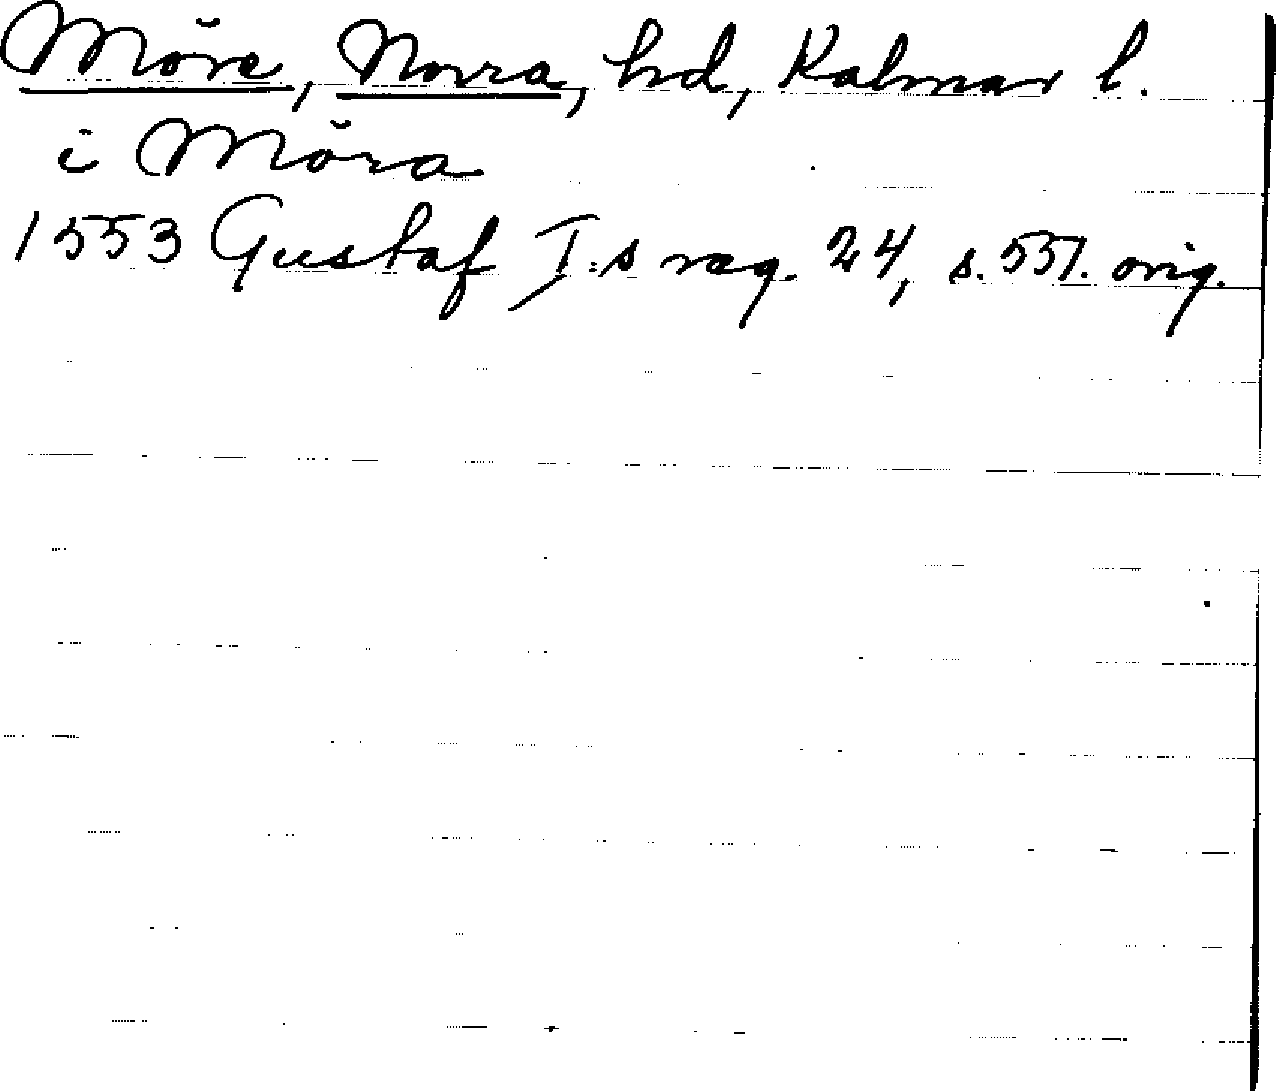 Möre, Norra, hd, Kalmar l.
i Möra
1553 Gustaf I:s reg. 24, s. 551. orig.